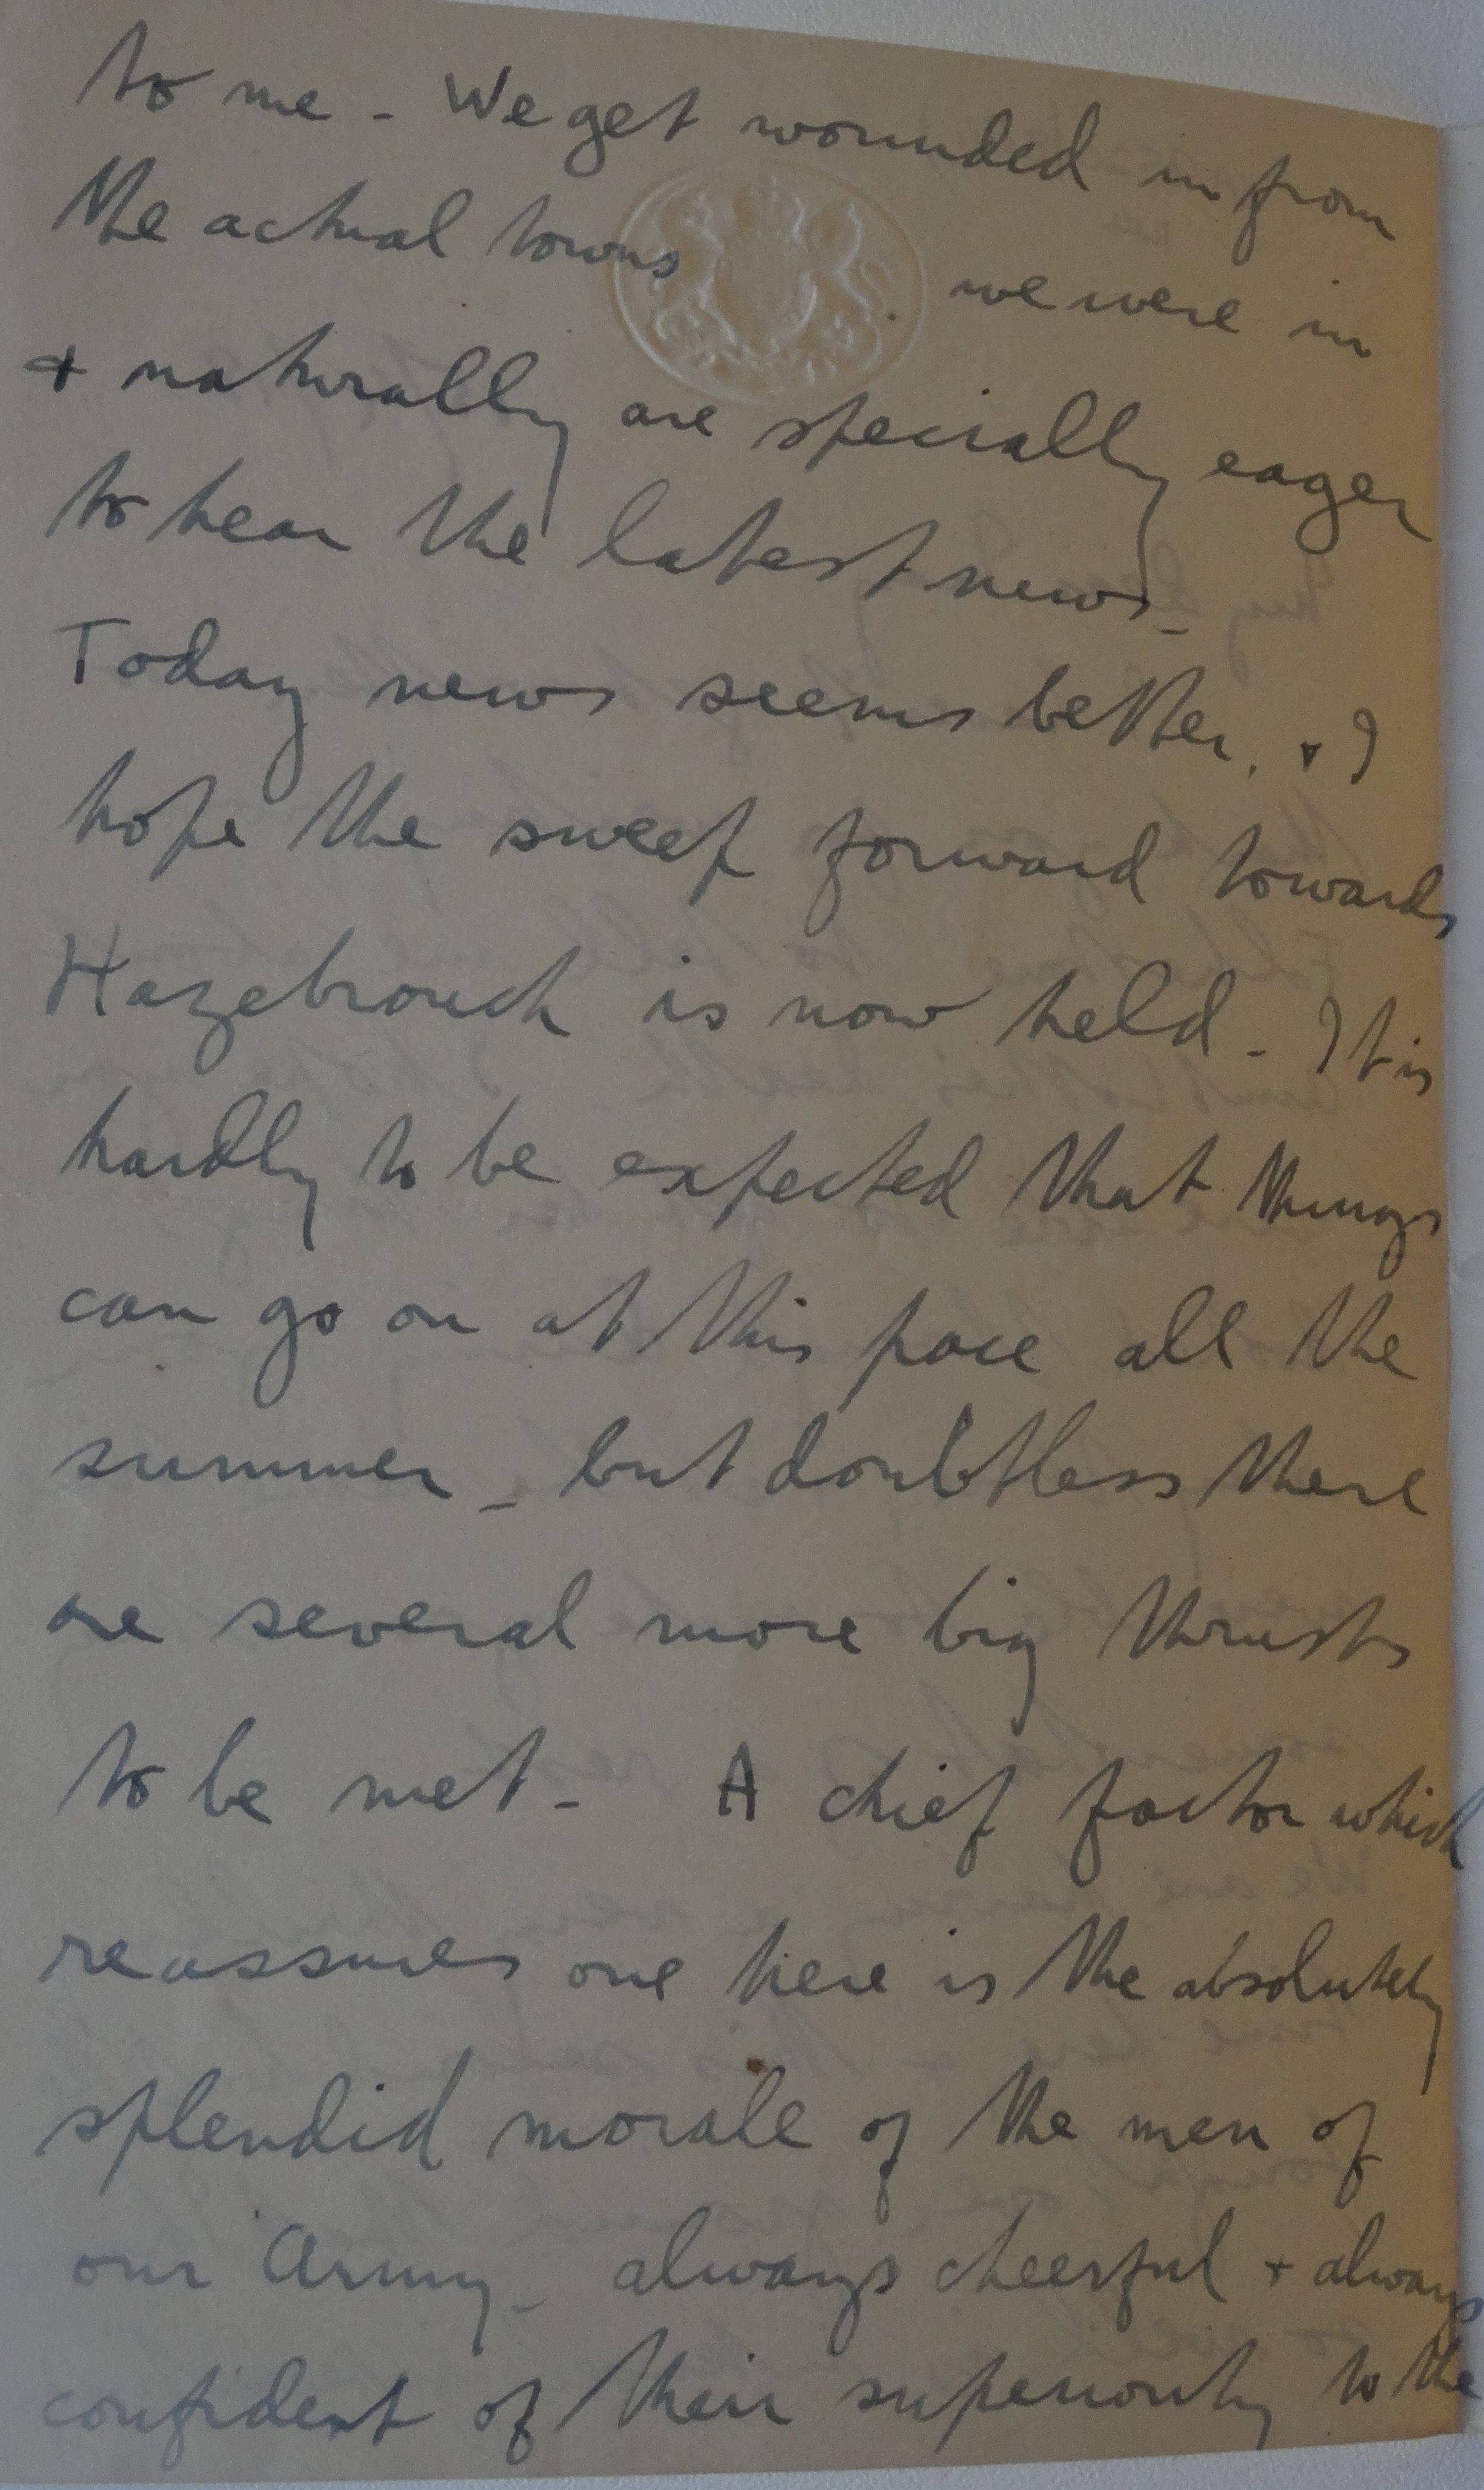 to me - We get wounded in from
the actual towns we were in
+ naturally are specially eager
to hear the latest news -
Today news seems better, + I
hope the sweep forward towards
Hazebrouck is now held - It is
hardly to be expected that things
can go on at this pace all the
summer - but doubtless there
are several more big thrusts
to be met - A chief factor which
reassures one here is the absolutely
splendid morale of the men of
our Army - always cheerful + always
confident of their superiority to the